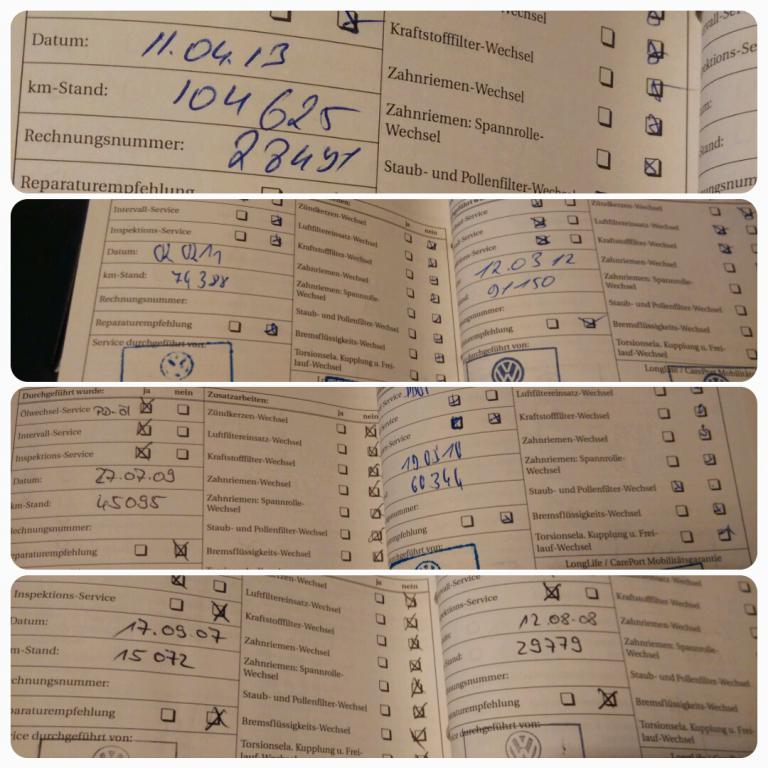 Datum: 11.04.13
km-Stand: 104625
Rechnungsnummer:
Reparaturempfehlung
Kraftstofffilter-Wechsel
Zahnriemen-Wechsel
Zahnriemen: Spannrolle-
Wechsel
Staub- und Pollenfilter-Wechsel
Intervall-Service
Inspektions-Service
Datum:
km-Stand: 74388
Rechnungsnummer:
Reparaturempfehlung
Service durchgeführt von:
ja nein
Zündkerzen-Wechsel
Luftfiltereinsatz-Wechsel
Kraftstofffilter-Wechsel
Zahnriemen-Wechsel
Zahnriemen: Spannrolle-
Wechsel
Staub- und Pollenfilter-Wechsel
Bremsflüssigkeits-Wechsel
Torsionsela. Kupplung u. Frei-
lauf-Wechsel
12.03 12
91150
durchgeführt von:
Zündkerzen-Wechsel
Luftfiltereinsatz-Wechsel
Kraftstofffilter-Wechsel
Zahnriemen-Wechsel
Zahnriemen: Spannrolle-
Wechsel
Staub- und Pollenfilter-Wechsel
Bremsflüssigkeits-Wechsel
Torsionsela. Kupplung u. Frei-
lauf-Wechsel
LongLife / CarePort Mobilitäts
Durchgeführt wurde: ja nein
Ölwechsel-Service PD-Öl
Intervall-Service
Inspektions-Service
Datum: 27.07.09
km-Stand: 45095
Rechnungsnummer:
Reparaturempfehlung
Zusatzarbeiten: ja nein
Zündkerzen-Wechsel
Luftfiltereinsatz-Wechsel
Kraftstofffilter-Wechsel
Zahnriemen-Wechsel
Zahnriemen: Spannrolle-
Wechsel
Staub- und Pollenfilter-Wechsel
Bremsflüssigkeits-Wechsel
-Service
19.05.10
60344
Luftfiltereinsatz-Wechsel
Kraftstofffilter-Wechsel
Zahnriemen-Wechsel
Zahnriemen: Spannrolle-
Wechsel
Staub- und Pollenfilter-Wechsel
Bremsflüssigkeits-Wechsel
Torsionsela. Kupplung u. Frei-
lauf-Wechsel
LongLife / CarePort Mobilitätsgarantie
Inspektions-Service
Datum: 17.09.07
km-Stand: 15 072
Rechnungsnummer:
Reparaturempfehlung
Service durchgeführt von:
ja nein
Luftfiltereinsatz-Wechsel
Kraftstofffilter-Wechsel
Zahnriemen-Wechsel
Zahnriemen: Spannrolle-
Wechsel
Staub- und Pollenfilter-Wechsel
Bremsflüssigkeits-Wechsel
Torsionsela. Kupplung u. Frei-
lauf-Wechsel
12.08.08
29779
durchgeführt von:
Kraftstofffilter-Wechsel
Zahnriemen-Wechsel
Zahnriemen: Spannrolle-
Wechsel
Staub- und Pollenfilter-Wechsel
Bremsflüssigkeits-Wechsel
Torsionsela. Kupplung u. Frei-
lauf-Wechsel